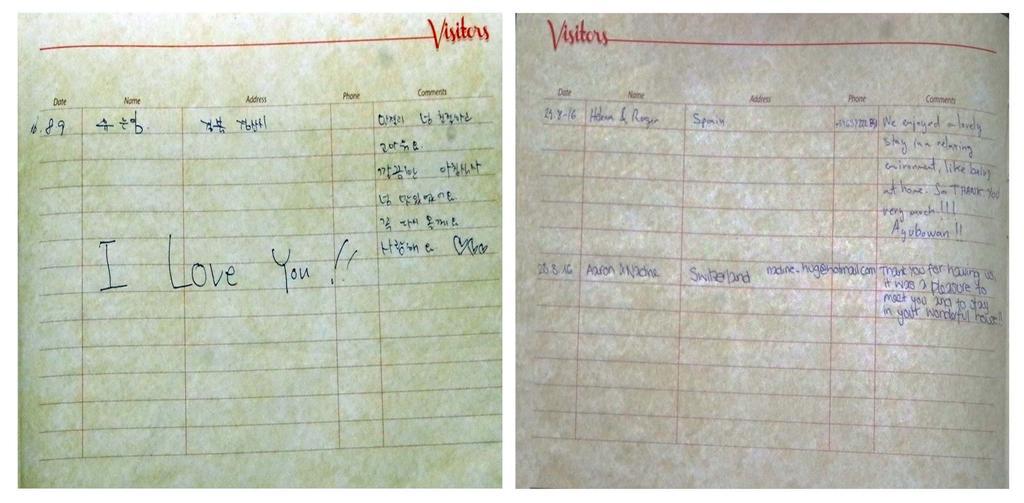 Visitors
Date Name Address Phone Comments
8.9 경북
너 친절하고
고마워요.
깔끔한 아침식사
넘 맛있었어요
꼭 다시 올께요
사랑해요
I Love You !!
Visitors
Date Name Address Phone Comments
29-8-16 Helena & Roger Spain We enjoyed a lovely
stay in a relaxing
environment, like being
at home. So THANK YOU
very much!!!
Ayubowan!!
28.8.16 Aaron & Nadine Switzerland nadine.hug@hotmail.com Thank you for having us,
it was a pleasure to
meet you and to stay
in your wonderful house!!